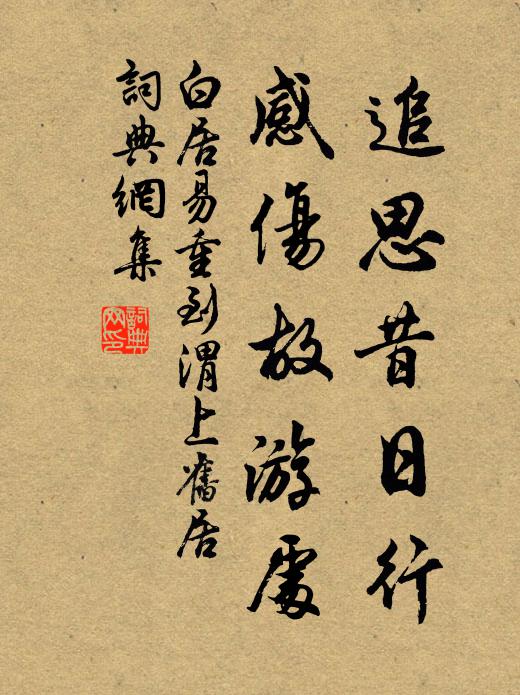 追思昔日行
感傷故游處
白居易重到渭上舊居
詞典網集
詞典網印